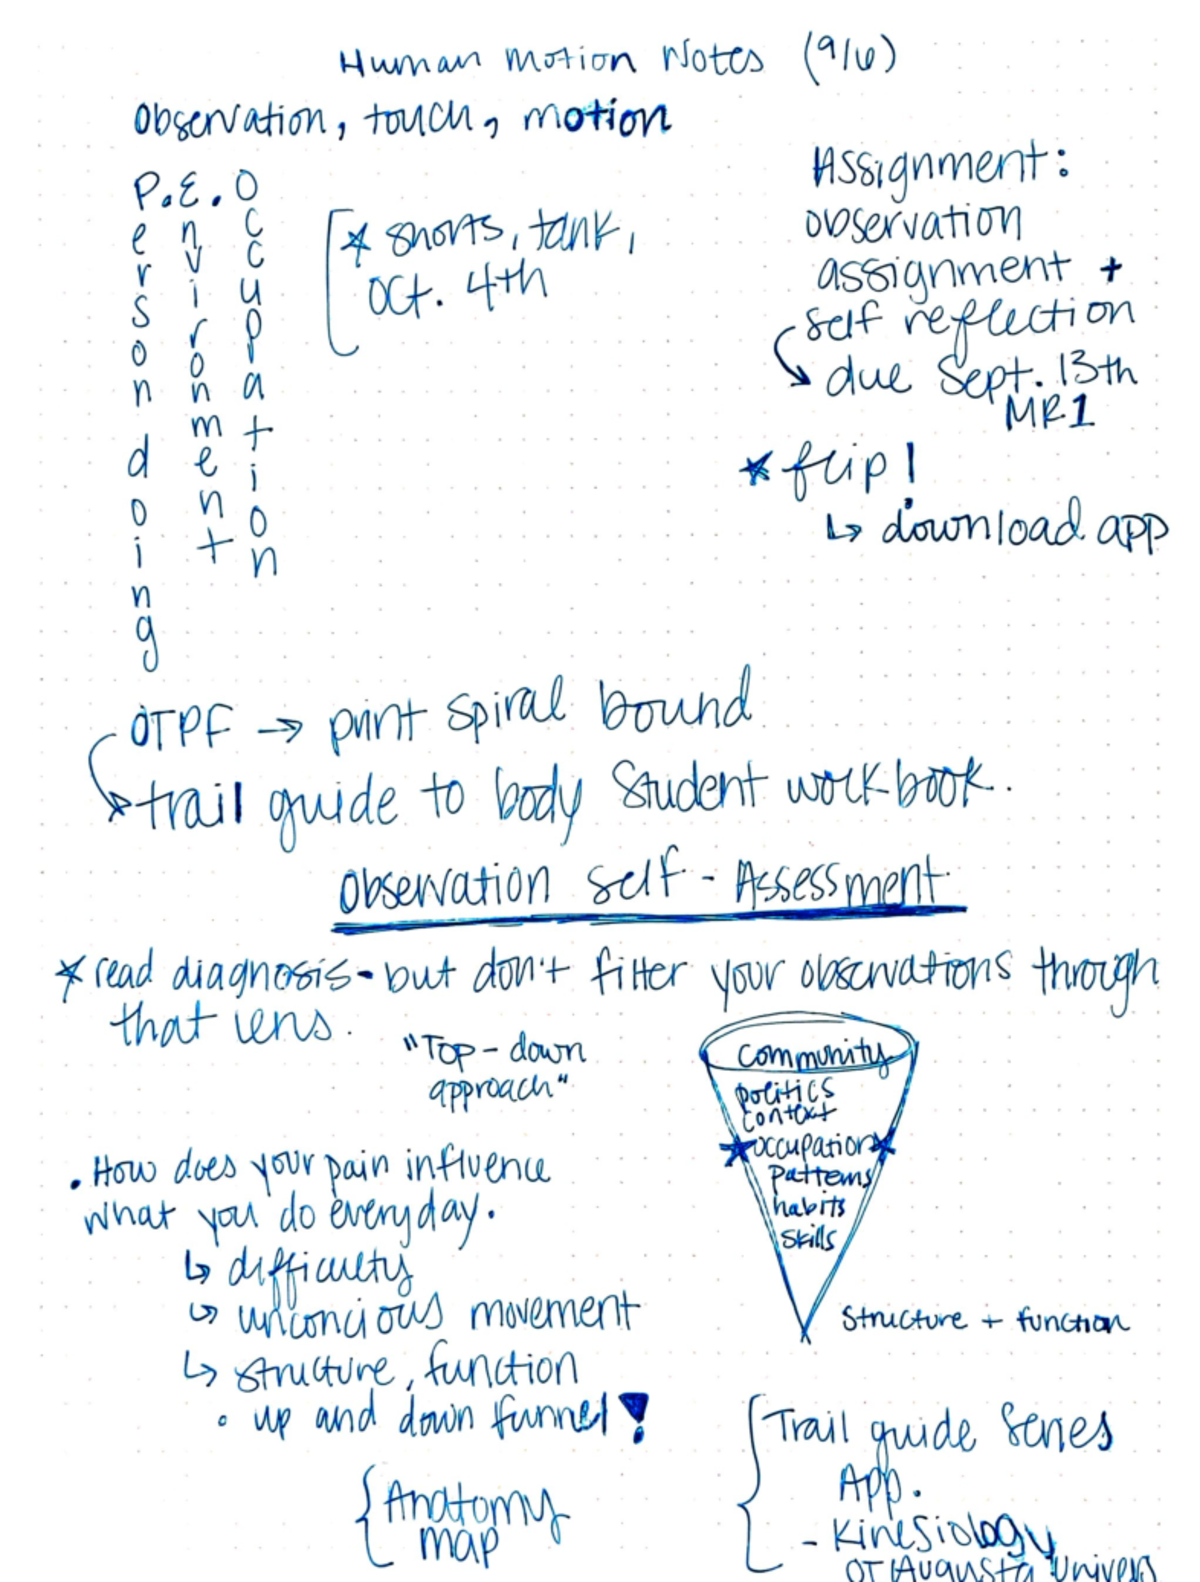 Human Motion Notes (9/6)
Observation, touch, motion
P.E.O
Person doing
Environment
Occupation
* shorts, tank,
Oct. 4th
Assignment:
observation
assignment +
self reflection
↳ due Sept. 13th
MR1
* flip!
↳ download app
OTPF → print spiral bound
→ trail guide to body Student workbook.
Observation self - Assessment
* read diagnosis - but don't filter your observations through
that lens.
"Top - down
approach"
Community
politics
context
* occupation *
patterns
habits
skills
Structure + function
• How does your pain influence
what you do everyday.
↳ difficulty
↳ unconcious movement
↳ structure, function
• up and down funnel!
{ Anatomy
map
{ Trail guide Series
App.
- Kinesiology
OT Augusta Univers